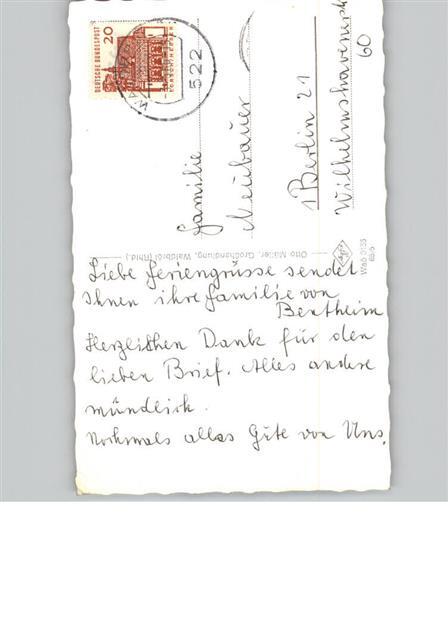 Liebe Feriengrüsse sendet
Ihnen ihre Familie von
Bentheim
Herzlichen Dank für den
lieben Brief. Alles andere
mündlich.
Nochmals alles Gute von Uns.
Familie
Neubauer
1 Berlin 21
Wilhelmshavenerstr
60
DEUTSCHE BUNDESPOST
20
522
Otto Müller, Großhandlung, Waldbröl (Rhld.)
Agfa